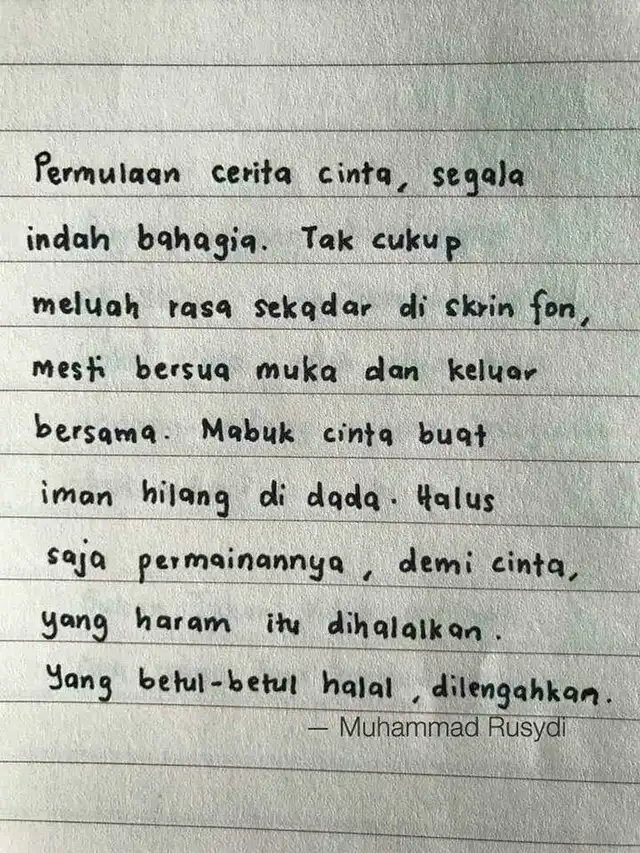 Permulaan cerita cinta, segala
indah bahagia. Tak cukup
meluah rasa sekadar di skrin fon,
mesti bersua muka dan keluar
bersama. Mabuk cinta buat
iman hilang di dada. Halus
saja permainannya, demi cinta,
yang haram itu dihalalkan.
Yang betul-betul halal, dilengahkan.
— Muhammad Rusydi